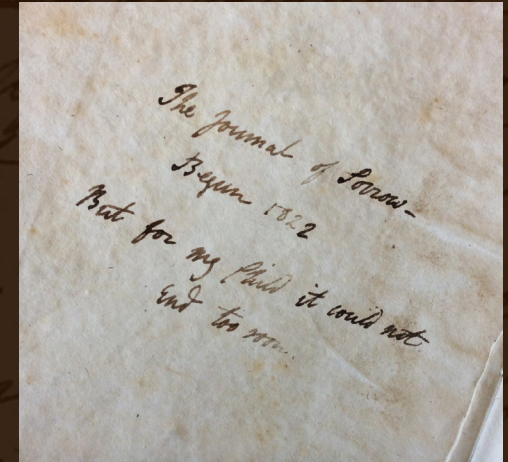 The Journal of Sorrow—
Begun 1822
But for my Child it could not
End too soon.